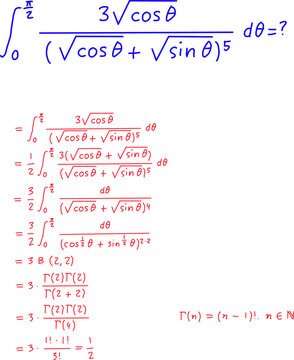 ∫₀^{π/2} 3√cosθ / (√cosθ + √sinθ)⁵ dθ = ?
= ∫₀^{π/2} 3√cosθ / (√cosθ + √sinθ)⁵ dθ
= 1/2 ∫₀^{π/2} 3(√cosθ + √sinθ) / (√cosθ + √sinθ)⁵ dθ
= 3/2 ∫₀^{π/2} dθ / (√cosθ + √sinθ)⁴
= 3/2 ∫₀^{π/2} dθ / (cos^{1/2}θ + sin^{1/2}θ)^{2·2}
= 3 B (2, 2)
= 3 · Γ(2)Γ(2) / Γ(2 + 2)
= 3 · Γ(2)Γ(2) / Γ(4) Γ(n) = (n − 1)!. n ∈ ℕ
= 3 · 1! · 1! / 3! = 1/2